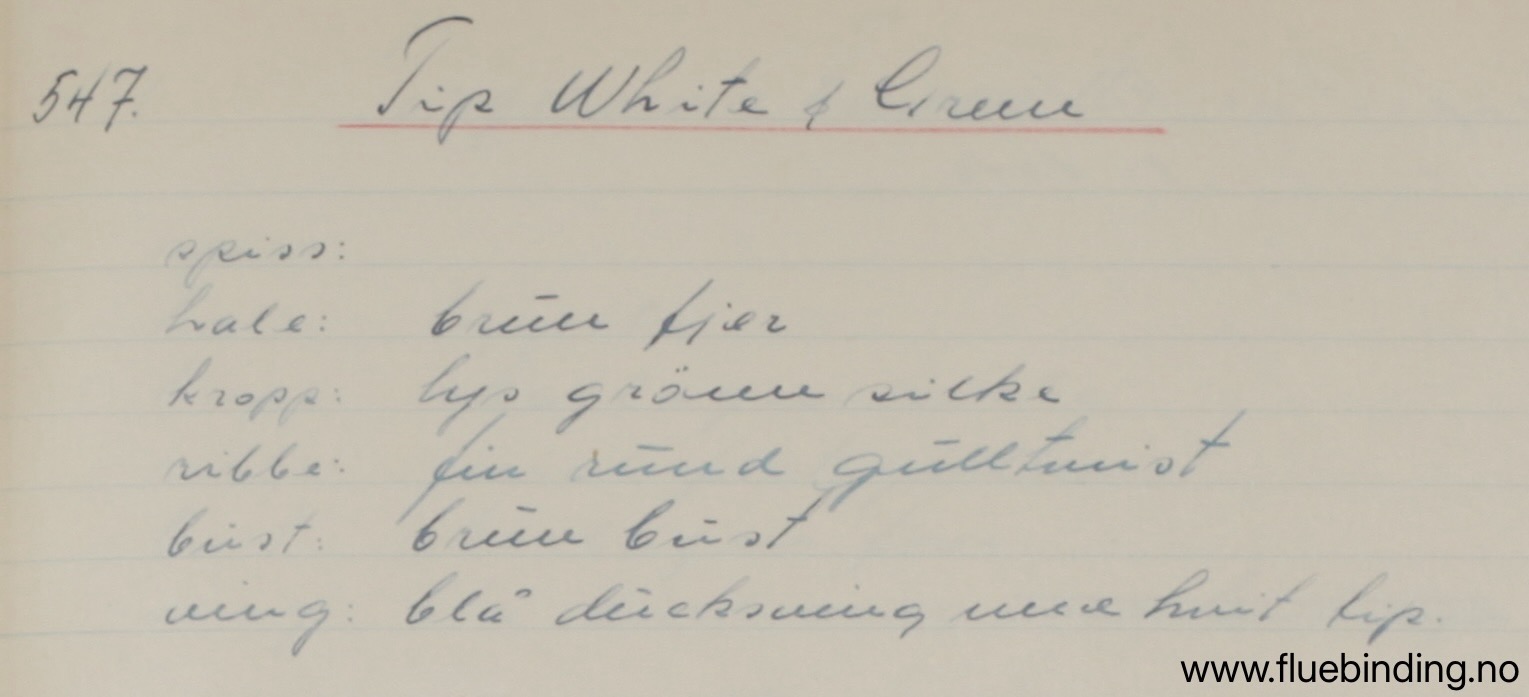 547. Tip White & Green
spiss:
hale: brun fjer
kropp: lys grönn silke
ribbe: fin rund gulltwist
bust: brun bust
ving: blå ducksving med hvit tip.
www.fluebinding.no